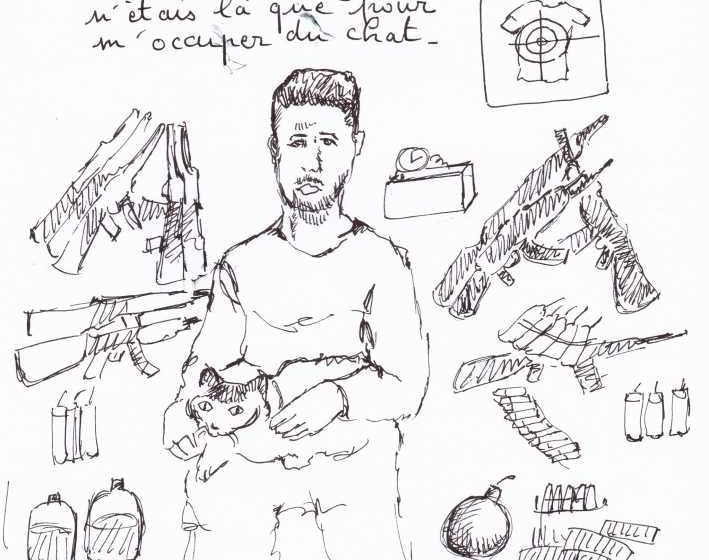 n'étais là que pour
m'occuper du chat_